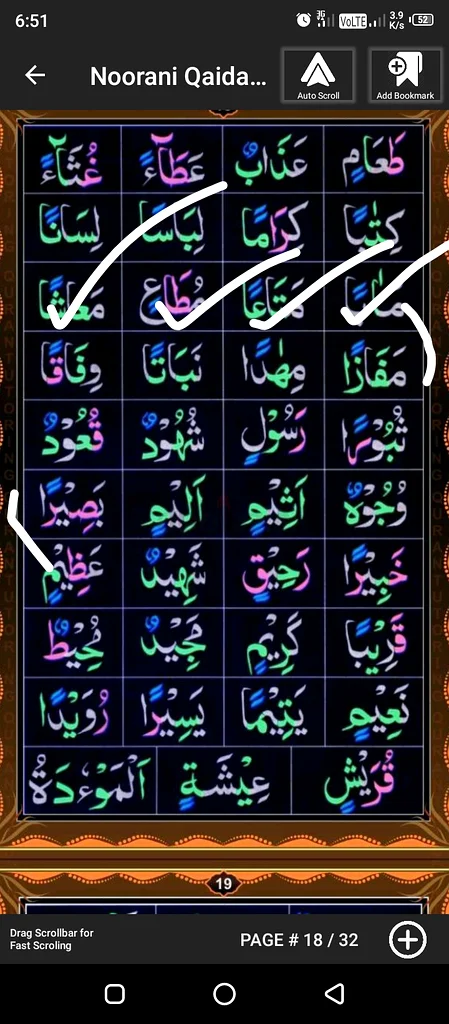 6:51
VoLTE 3.9 K/s 52
Noorani Qaida...
Auto Scroll
Add Bookmark
طَعَامٍ عَذَابٌ عَطَآءً غُثَآءً
كِتٰبًا كِرَامًا لِبَاسًا لِسَانًا
مَتَاعًا مُطَاعٍ مَعَاشًا
مَفَازًا مِهٰدًا نَبَاتًا وِفَاقًا
ثُبُوْرًا رَسُوْلٍ شُهُوْدٌ قُعُوْدٌ
وُجُوْهٌ اَثِيْمٍ اَلِيْمٍ بَصِيْرًا
خَبِيْرًا رَحِيْقٍ شَهِيْدٌ عَظِيْمٍ
قَرِيْبًا كَرِيْمٍ مَجِيْدٌ مُحِيْطٌ
نَعِيْمٍ يَتِيْمًا يَسِيْرًا رُوَيْدًا
قُرَيْشٍ عِيْشَةٍ اَلْمَوْءٗدَةُ
19
Drag Scrollbar for
Fast Scroling
PAGE # 18 / 32